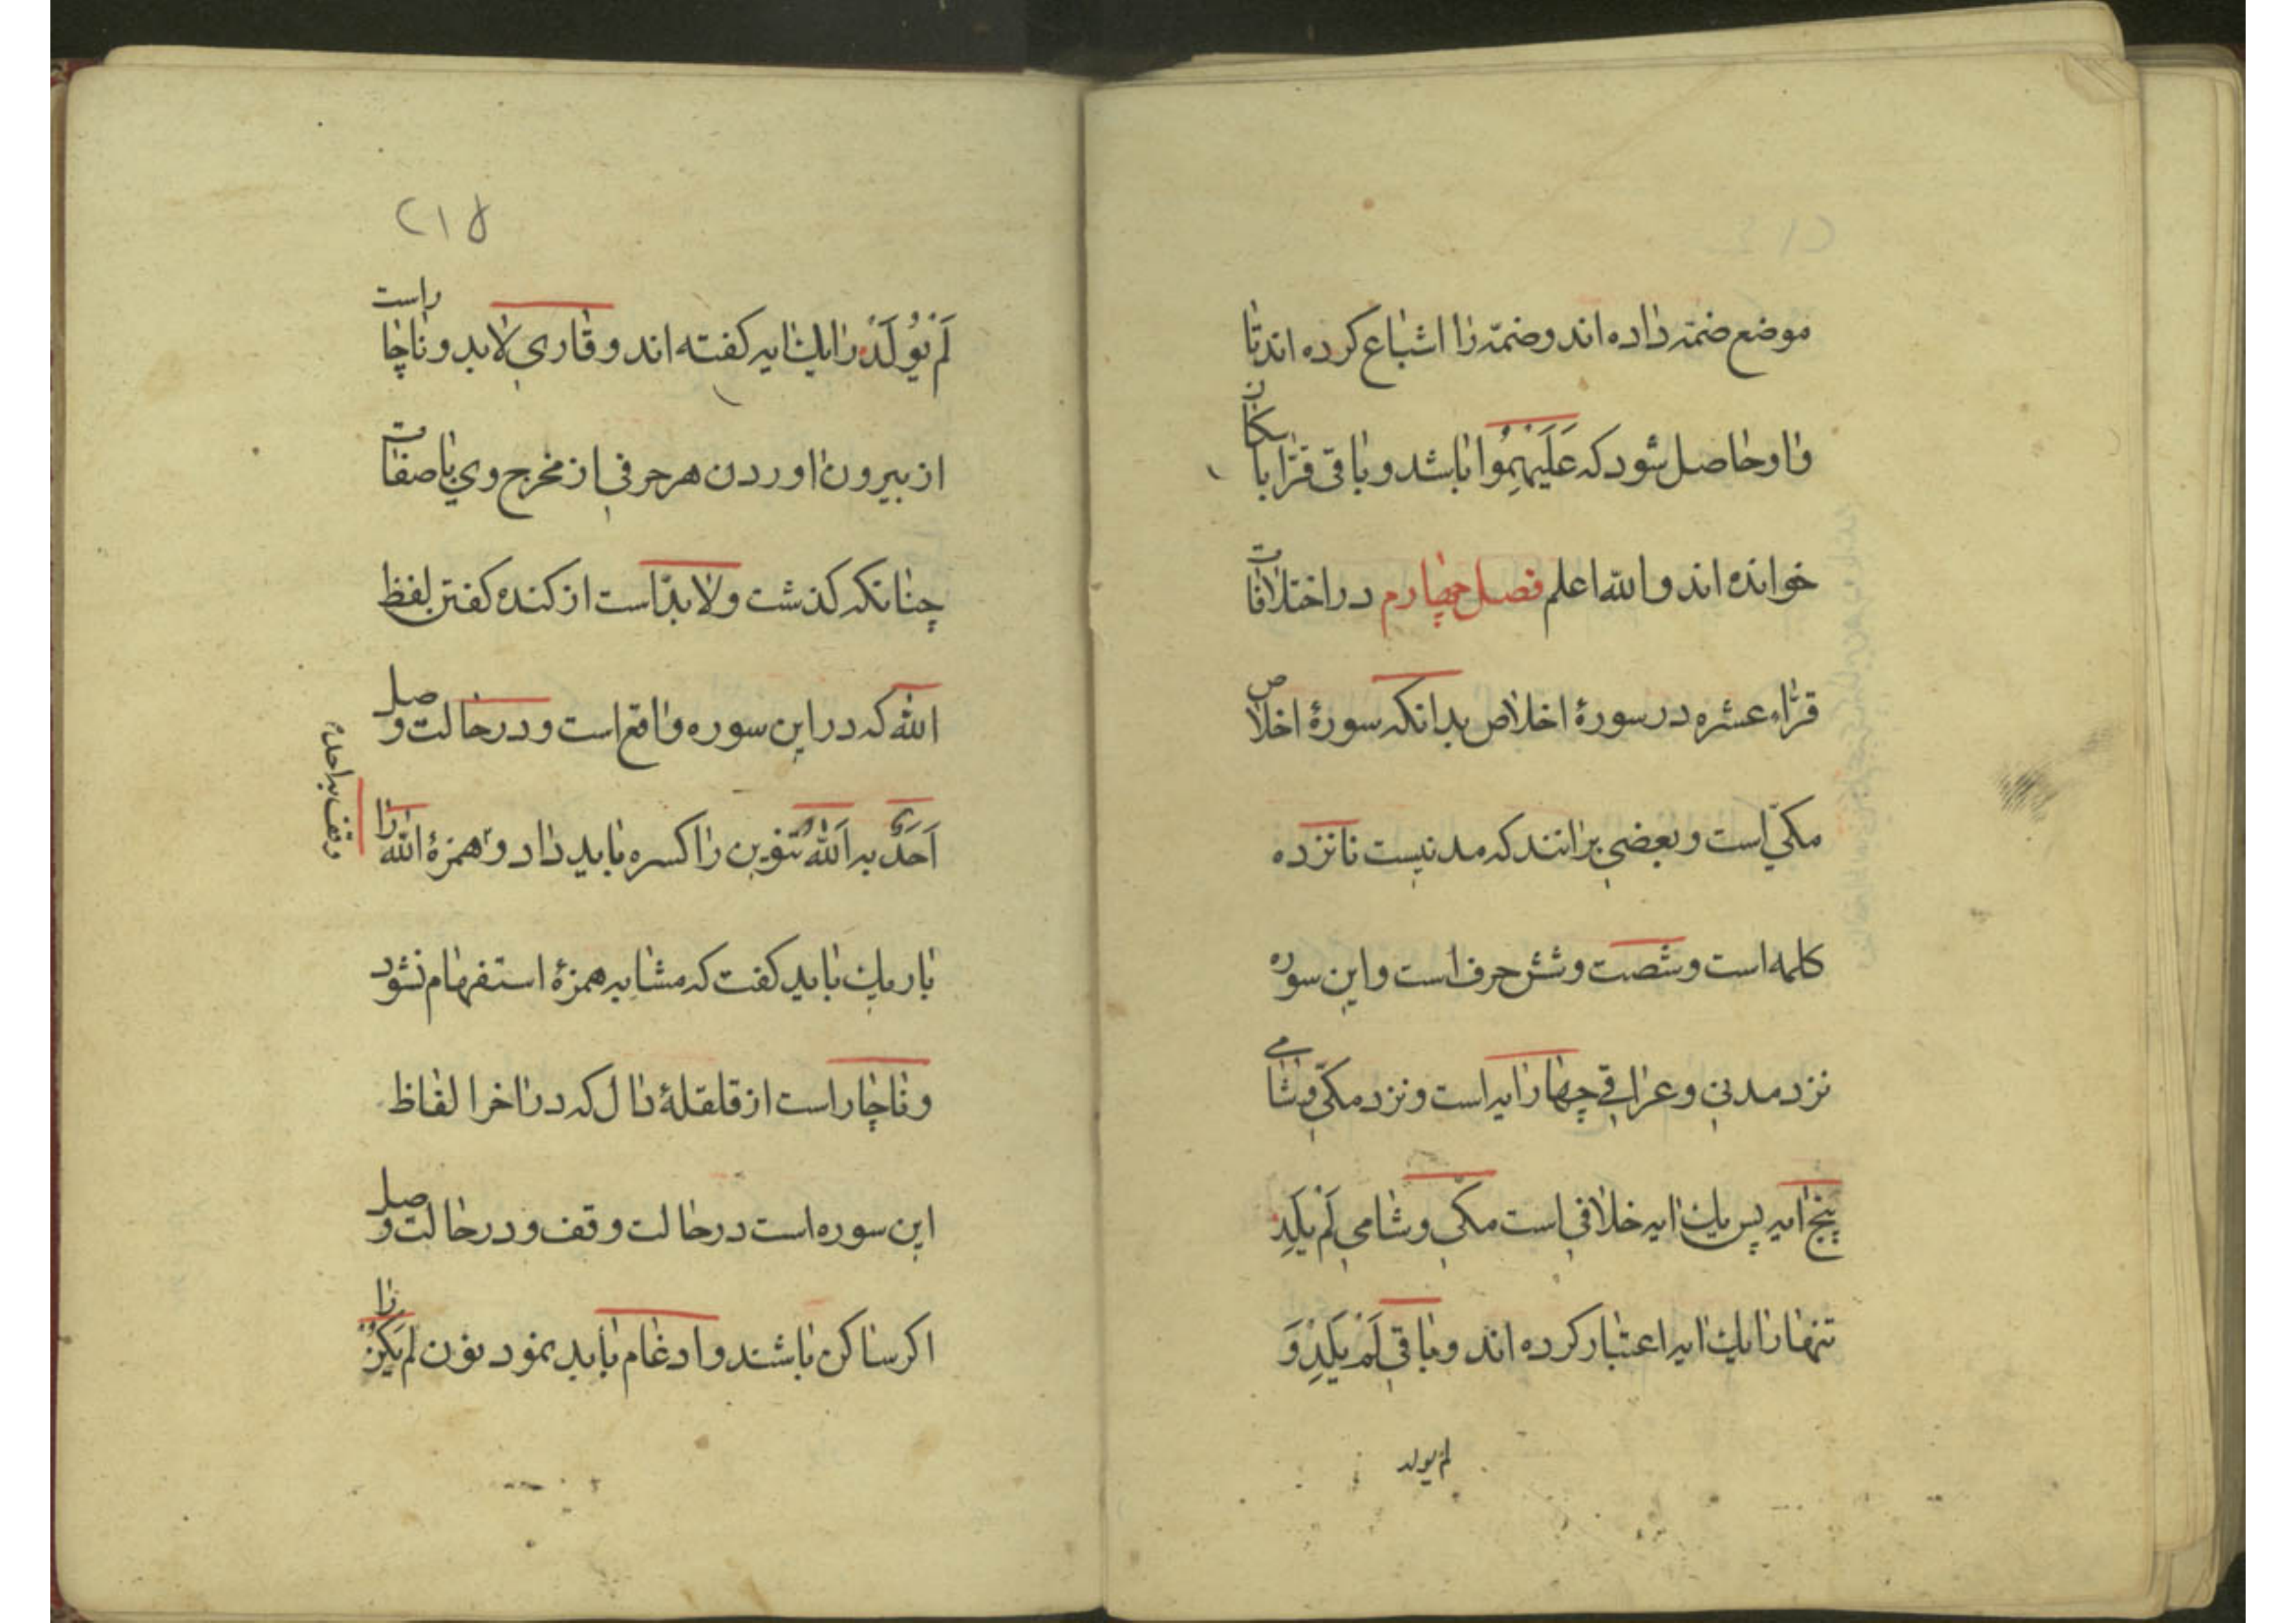 موضع ضمّه داده اند وضمّه را اشباع كرده اند تا
واو حاصل شود كه عَلَيْهِمُوا باشد و باقی قرّا باسكان
خوانده اند والله اعلم فصل چهارم در اختلافات
قرّاء عشره در سورهٔ اخلاص بدانكه سورهٔ اخلاص
مكّي است و بعضي برانند كه مدنيست پانزده
كلمه است و شصت و شش حرف است و اين سوره
نزد مدني و عراقي چهار ايه است و نزد مكّي و شامي
پنج ايه پس يك ايه خلافي است مكّي و شامي لَمْ يَلِدْ
تنها را يك ايه اعتبار كرده اند و باقي لَمْ يَلِدْ وَ
لم يولد
٢١٥
لَمْ يُولَدْ را يك ايه كفته اند و قاري لابد و ناچار است
از بيرون اوردن هر حرفي از مخرج وي با صفات
چنانكه كذشت و لابدّ است از كنده كفتن لفظ
الله كه در اين سوره واقع است و در حالت وصل
اَحَدٌ به اَللهُ تنوين را كسره بايد داد و همزهٔ الله را
وقف بر احد
باريك بايد كفت كه مشابه همزهٔ استفهام نشود
و ناچار است از قلقلهٔ دال كه در اخر الفاظ
اين سوره است در حالت وقف و در حالت وصل
اكر ساكن باشند و ادغام بايد نمود نون لم يَكُنْ را